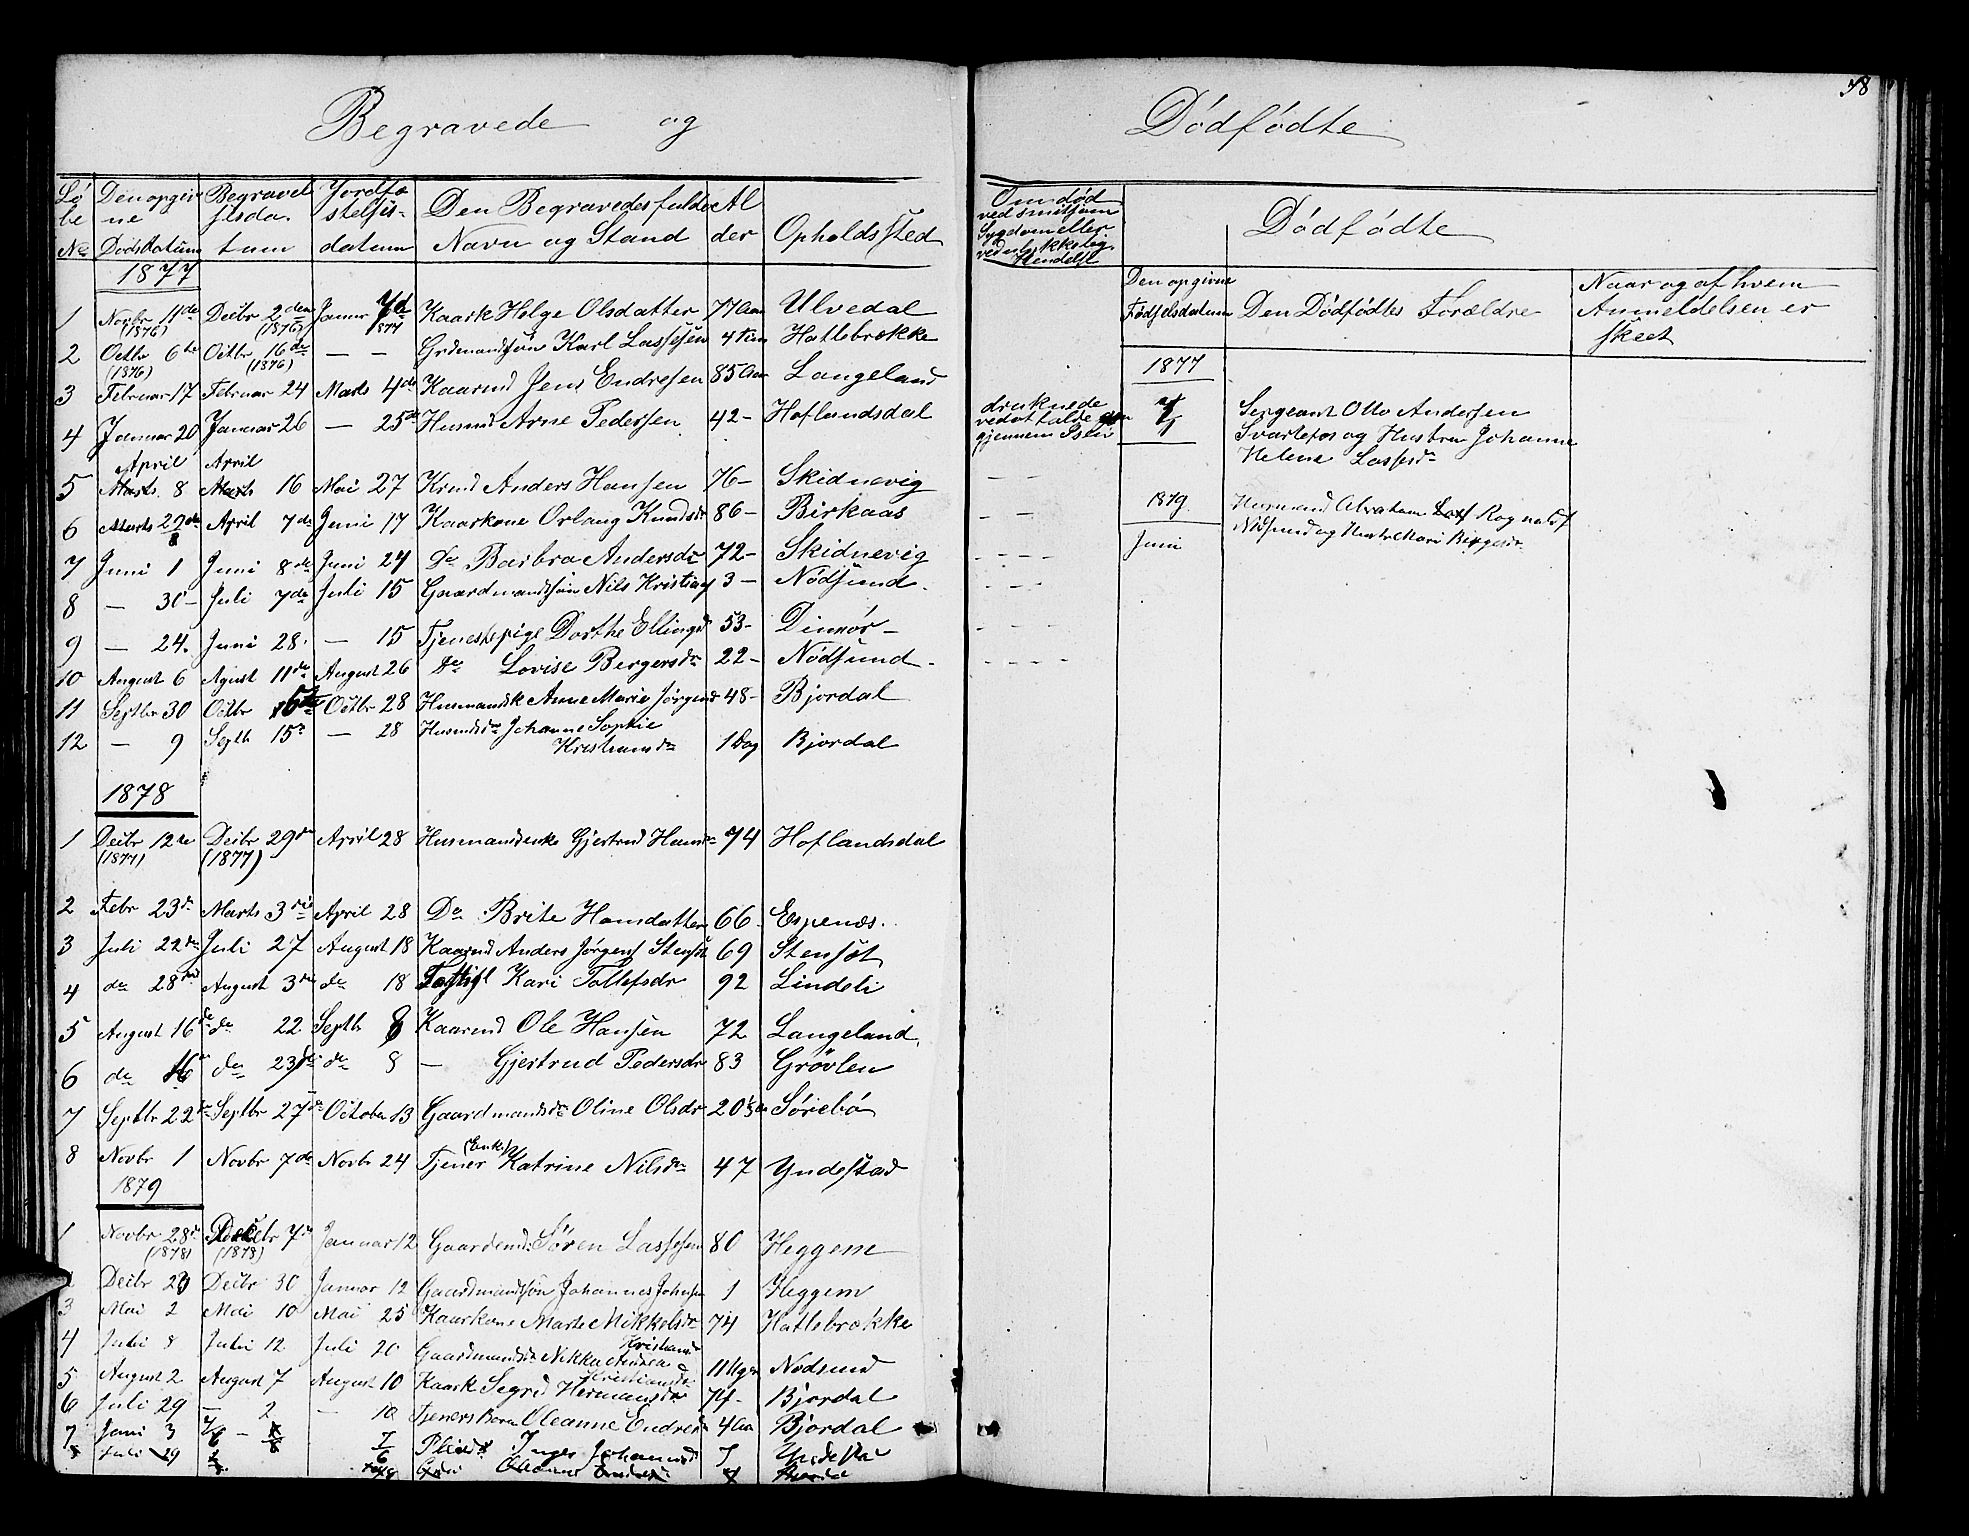 Begravede og
Lö be No | Den opgiv ne Dødsdatum | Begravel sesda. tum | Jordfæ stelses- datum | Den Begravedes fulde Navn og Stand | Al der | Opholdssted
1877
1 Novbr 11te (1876) Decbr 2den (1876) Januar 7de 1877 Kaark Helge Olsdatter 77 Aar Ulvedal
2 Octbr 6te (1876) Octbr 16de (1876) — — Grdmandssøn Karl Lassesen 4 Tim Hatlebrække
3 Februar 17 Februar 24 Marts 4de Kaarmd Jens Endresen 85 Aar Langeland
4 Januar 20 Januar 26 — 25de Husmd Arne Pedersen 42- Hoflandsdal
April April
5 Marts 8 Marts 16 Mai 27 Anders Hansen 76- Skidnevig
6 Marts 29de April 7de Juni 17 Kaarkone Orlaug Knudsdr 86- Birkaas
7 Juni 1 Juni 8de Juni 24 Do Barbra Andersdr 72- Skidnevig
8 — 30- Juli 7de Juli 15 Gaardmandssøn Nils Kristian 3- Nødsund.
9 — 24. Juni 28. — 15 Tjenestepige Dorthe Ellingsd 53- Dinmør-
10 August 6 Agust 11de August 26 Do Lovise Bergersdr 22- Nødsund.
11 Septbr 30 Octbr Octbr 28 Husmandsk Anne Marie Jørgensd 48- Bjordal
12 — 9 Septb 15 — 28 Husmdsdr Johanne Sophie
Kristiansdr 1 Dag Bjordal
1878
1 Decbr 12te (1877) Decbr 29de (1877) April 28 Husmandsenke Gjertrud Hansdr 74 Hoflandsdal
2 Febr 23de Marts 3die April 28 Do Brite Hansdatter 66 Espenæs.
3 Juli 22de Juli 27 August 18 Kaarmd Anders Jørgens Stensöt 69 Stensöt
4 do 28de August 3die do 18 Kari Tollefsdr 92 Lindeli
5 August 16de do 22 Septb 8 Kaarmd Ole Hansen 72 Langeland.
6 do 16 do 23de do 8 — Gjertrud Pedersdr 83 Grövlen
7 Septbr 22de Septbr 27de October 13 Gaardmandsdr Oline Olsdr 20 Sörebö
(Enke)
8 Novbr 1 Novbr 7de Novbr 24 Tjener Katrine Nilsdr 47 Yndestad
1879
1 Novbr 28de (1878) Decbr 7de (1878) Januar 12 Gaardmd: Sören Lassesen 80 Heggem
Decbr 29 Decbr 30 Januar 12 Gaardmandssøn Johannes Johnsen 1 Heggem
3 Mai 2 Mai 10 Mai 25 Kaarkone Marte Mikkelsdr 74 Hatlebrække
4 Juli 8 Juli 12 Juli 20 Gaardmandsdr Kristiansd 11 Uger Nødsund
5 August 2 August 7 August 10 Kaark Segrid Hermansdr 74- Bjordal
6 Juli 29 — 2 — 10 Tjeners Barn Oleanne Endresdr 4 Bjordal
7 Juni 3 Inger Johannesd Yndesta
Juli 29
58
Dödfödte
Om död ved smitsom Sygdom eller ved ulykkelig Hendelse
Dödfödte
Den opgivne Fødselsdatum | Den Dödfødtes Forældre | Naar og af hvem Anmeldelsen er skeet
1877
druknede ved at falde gjennem Isen
Sergeant Otto Andersen
Svartefos og Hustru Johanne
Helene Lassesdr
1879. Husmand Abraham Ragnalds
Nødsund og Hustr Mari Birgesdr
Juni